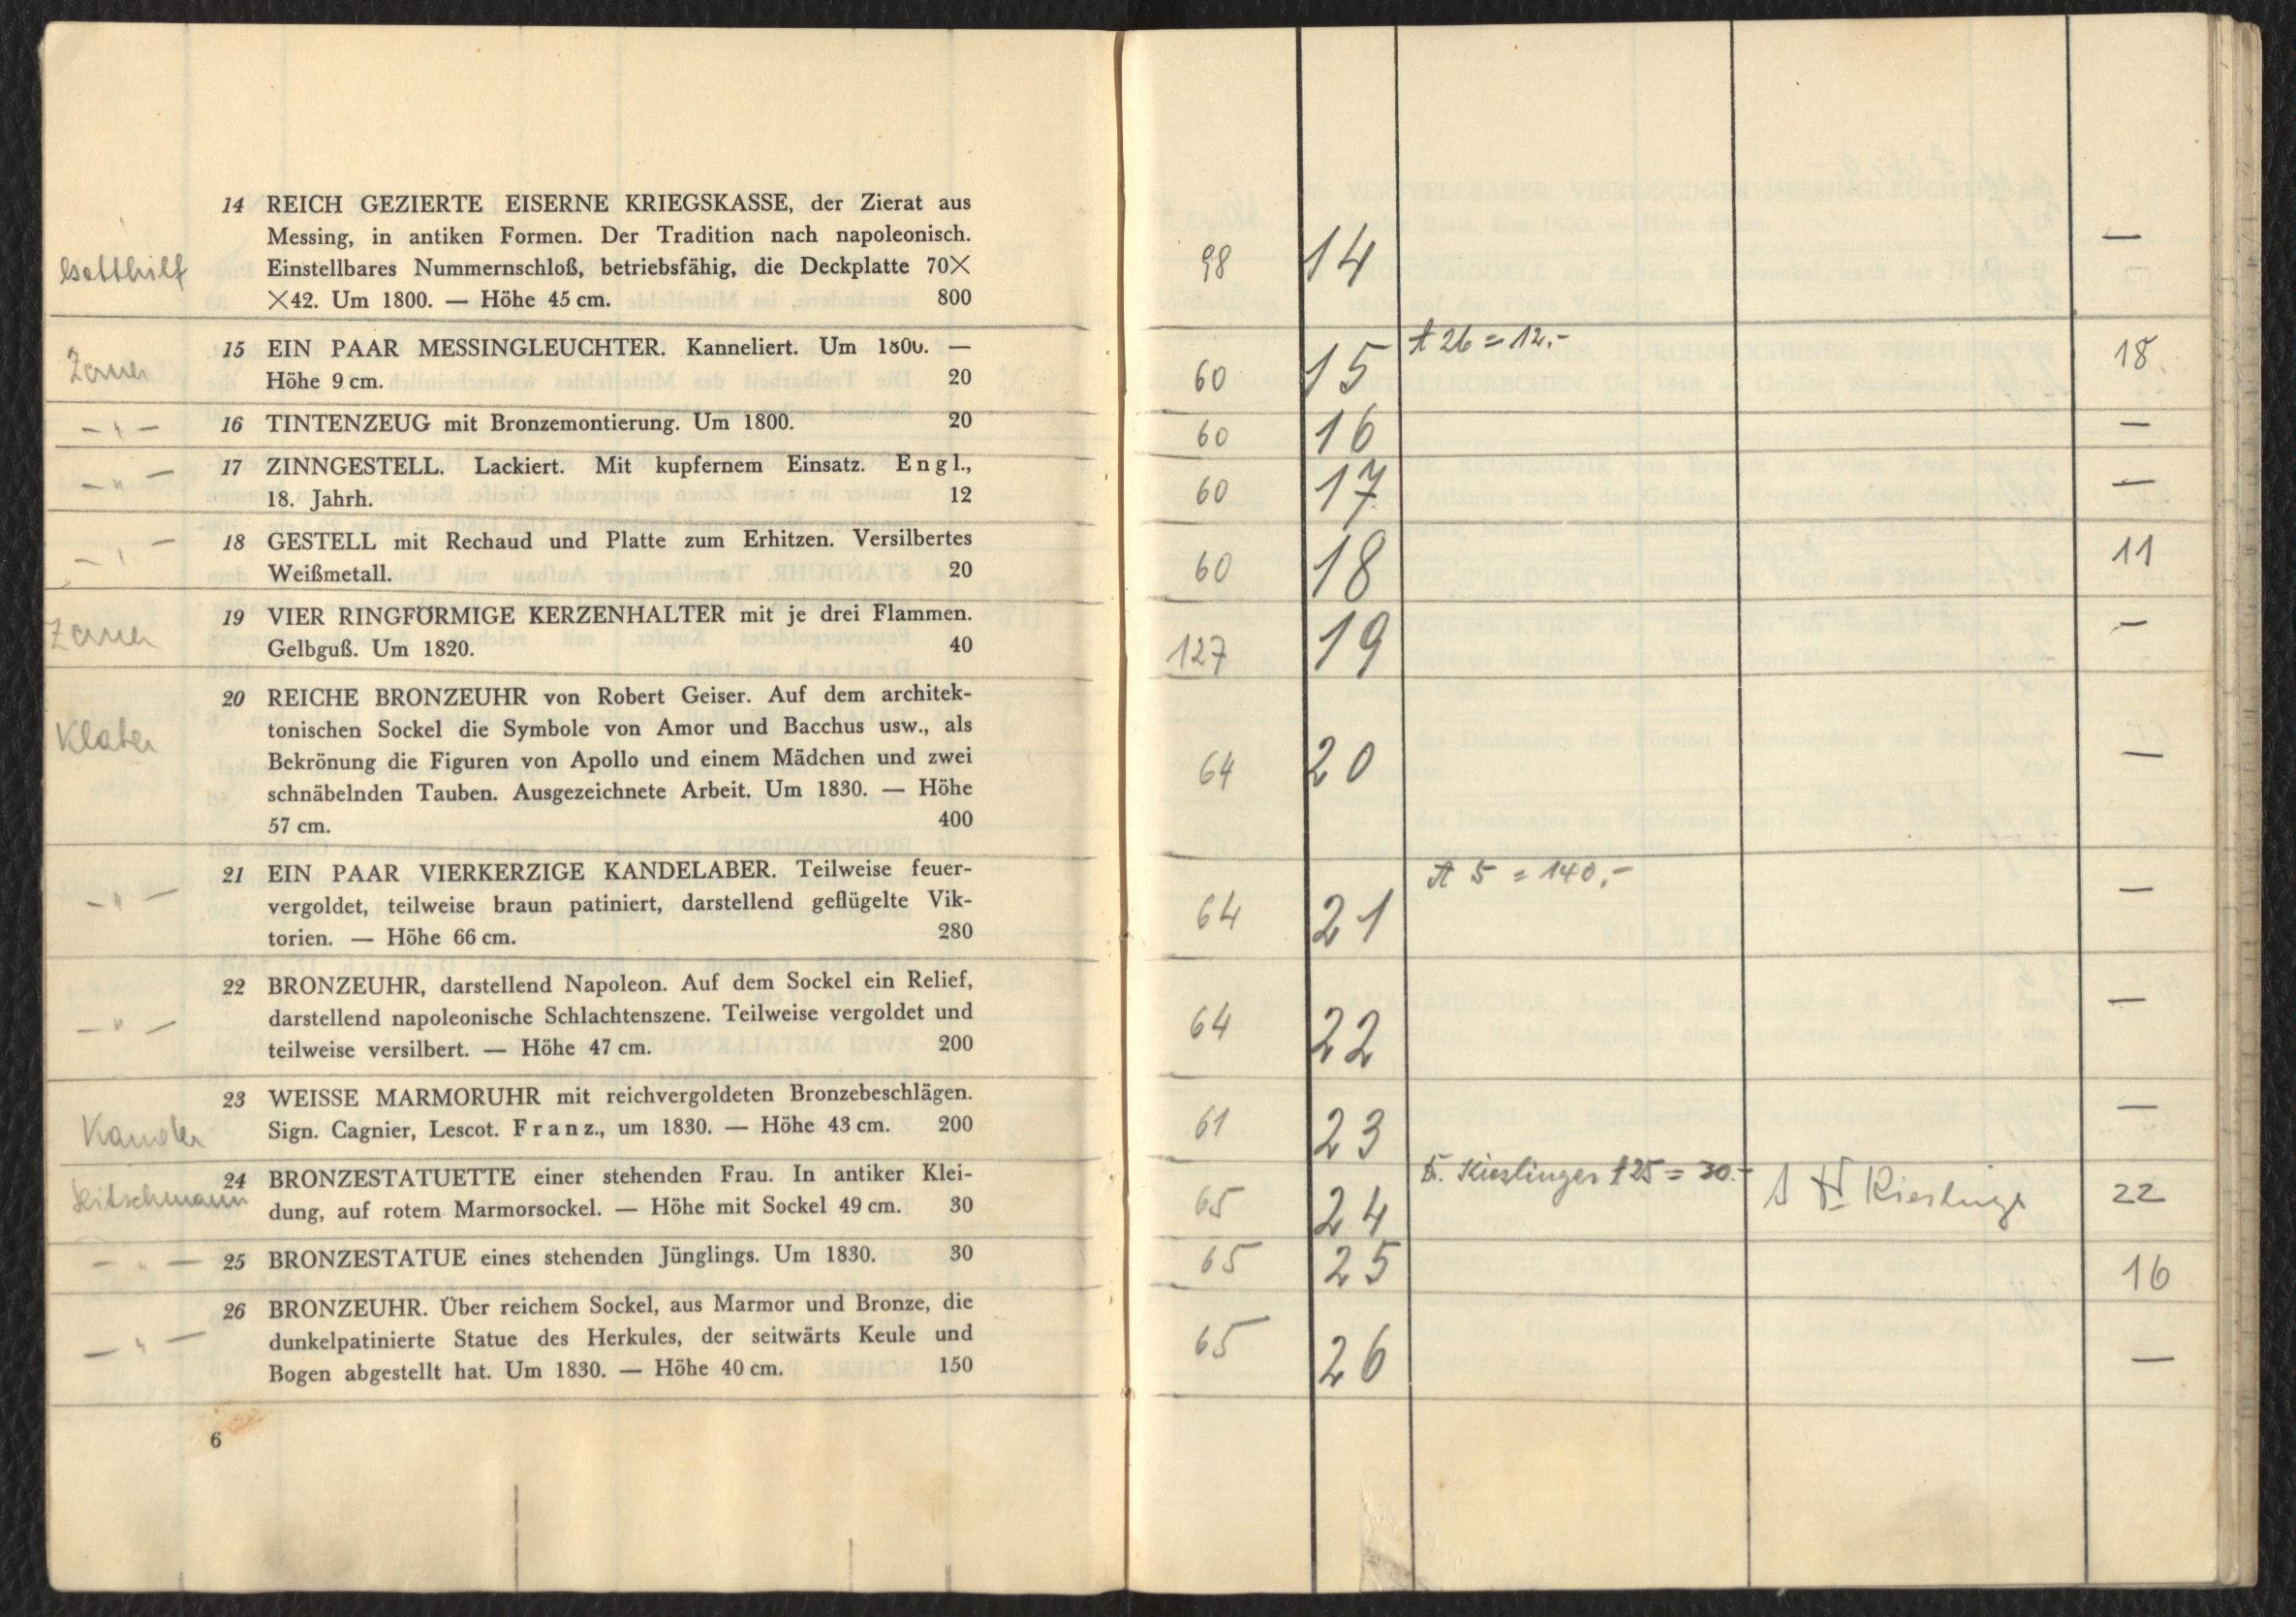 14 REICH GEZIERTE EISERNE KRIEGSKASSE, der Zierat aus
Messing, in antiken Formen. Der Tradition nach napoleonisch.
Gotthilf Einstellbares Nummernschloß, betriebsfähig, die Deckplatte 70×
×42. Um 1800. — Höhe 45 cm. 800
15 EIN PAAR MESSINGLEUCHTER. Kanneliert. Um 1800. —
Zerner Höhe 9 cm. 20
— " — 16 TINTENZEUG mit Bronzemontierung. Um 1800. 20
— " — 17 ZINNGESTELL. Lackiert. Mit kupfernem Einsatz. Engl.,
18. Jahrh. 12
— " — 18 GESTELL mit Rechaud und Platte zum Erhitzen. Versilbertes
Weißmetall. 20
Zerner 19 VIER RINGFÖRMIGE KERZENHALTER mit je drei Flammen.
Gelbguß. Um 1820. 40
20 REICHE BRONZEUHR von Robert Geiser. Auf dem architek-
Klaber tonischen Sockel die Symbole von Amor und Bacchus usw., als
Bekrönung die Figuren von Apollo und einem Mädchen und zwei
schnäbelnden Tauben. Ausgezeichnete Arbeit. Um 1830. — Höhe
57 cm. 400
21 EIN PAAR VIERKERZIGE KANDELABER. Teilweise feuer-
— " — vergoldet, teilweise braun patiniert, darstellend geflügelte Vik-
torien. — Höhe 66 cm. 280
22 BRONZEUHR, darstellend Napoleon. Auf dem Sockel ein Relief,
— " — darstellend napoleonische Schlachtenszene. Teilweise vergoldet und
teilweise versilbert. — Höhe 47 cm. 200
23 WEISSE MARMORUHR mit reichvergoldeten Bronzebeschlägen.
Kandler Sign. Cagnier, Lescot. Franz., um 1830. — Höhe 43 cm. 200
24 BRONZESTATUETTE einer stehenden Frau. In antiker Klei-
dung, auf rotem Marmorsockel. — Höhe mit Sockel 49 cm. 30
— " — 25 BRONZESTATUE eines stehenden Jünglings. Um 1830. 30
26 BRONZEUHR. Über reichem Sockel, aus Marmor und Bronze, die
— " — dunkelpatinierte Statue des Herkules, der seitwärts Keule und
Bogen abgestellt hat. Um 1830. — Höhe 40 cm. 150
6
98 14 —
60 15 t 26 = 12.- 18
60 16 —
60 17 —
60 18 11
127 19 —
64 20 —
64 21 A 5 = 140.- —
64 22 —
61 23 —
65 24 Kieslinger t 25 = 30.- Kieslinger 22
65 25 16
65 26 —